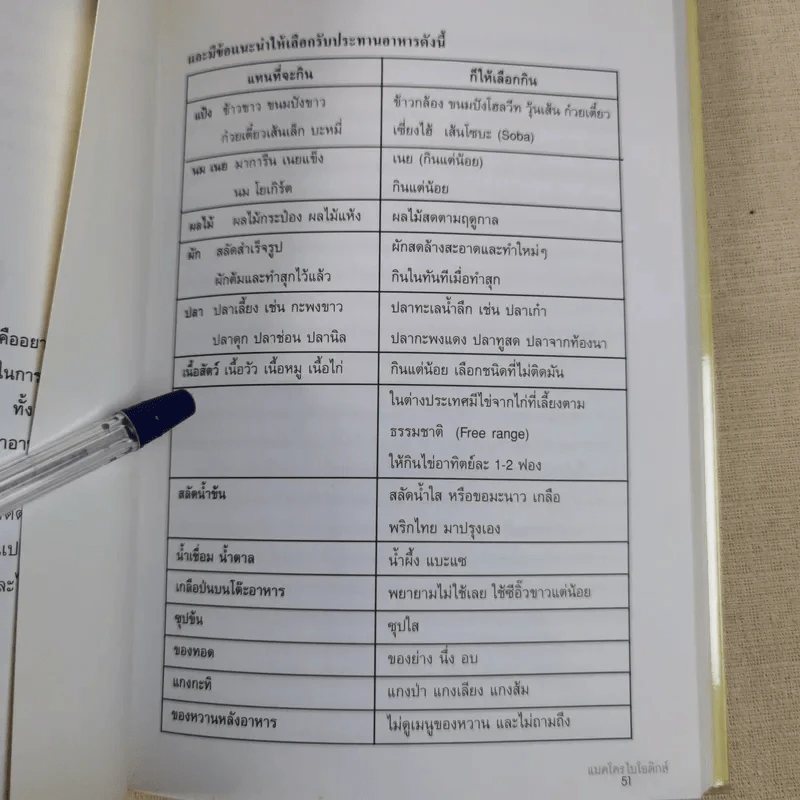 และมีข้อแนะนำให้เลือกรับประทานอาหารดังนี้
แทนที่จะกิน ก็ให้เลือกกิน
แป้ง ข้าวขาว ขนมปังขาว ข้าวกล้อง ขนมปังโฮลวีท วุ้นเส้น ก๋วยเตี๋ยว
ก๋วยเตี๋ยวเส้นเล็ก บะหมี่ เซี่ยงไฮ้ เส้นโซบะ (Soba)
นม เนย มาการีน เนยแข็ง เนย (กินแต่น้อย)
นม โยเกิร์ต กินแต่น้อย
ผลไม้ ผลไม้กระป๋อง ผลไม้แห้ง ผลไม้สดตามฤดูกาล
ผัก สลัดสำเร็จรูป ผักสดล้างสะอาดและทำใหม่ๆ
ผักต้มและทำสุกไว้แล้ว กินในทันทีเมื่อทำสุก
ปลา ปลาเลี้ยง เช่น กะพงขาว ปลาทะเลน้ำลึก เช่น ปลาเก๋า
ปลาดุก ปลาช่อน ปลานิล ปลากะพงแดง ปลาทูสด ปลาจากท้องนา
เนื้อสัตว์ เนื้อวัว เนื้อหมู เนื้อไก่ กินแต่น้อย เลือกชนิดที่ไม่ติดมัน
ในต่างประเทศมีไข่จากไก่ที่เลี้ยงตาม
ธรรมชาติ (Free range)
ให้กินไข่อาทิตย์ละ 1-2 ฟอง
สลัดน้ำข้น สลัดน้ำใส หรือขอมะนาว เกลือ
พริกไทย มาปรุงเอง
น้ำเชื่อม น้ำตาล น้ำผึ้ง แบะแซ
เกลือป่นบนโต๊ะอาหาร พยายามไม่ใช้เลย ใช้ซีอิ๊วขาวแต่น้อย
ซุปข้น ซุปใส
ของทอด ของย่าง นึ่ง อบ
แกงกะทิ แกงป่า แกงเลียง แกงส้ม
ของหวานหลังอาหาร ไม่ดูเมนูของหวาน และไม่ถามถึง
แมคโครไบโอติกส์
51